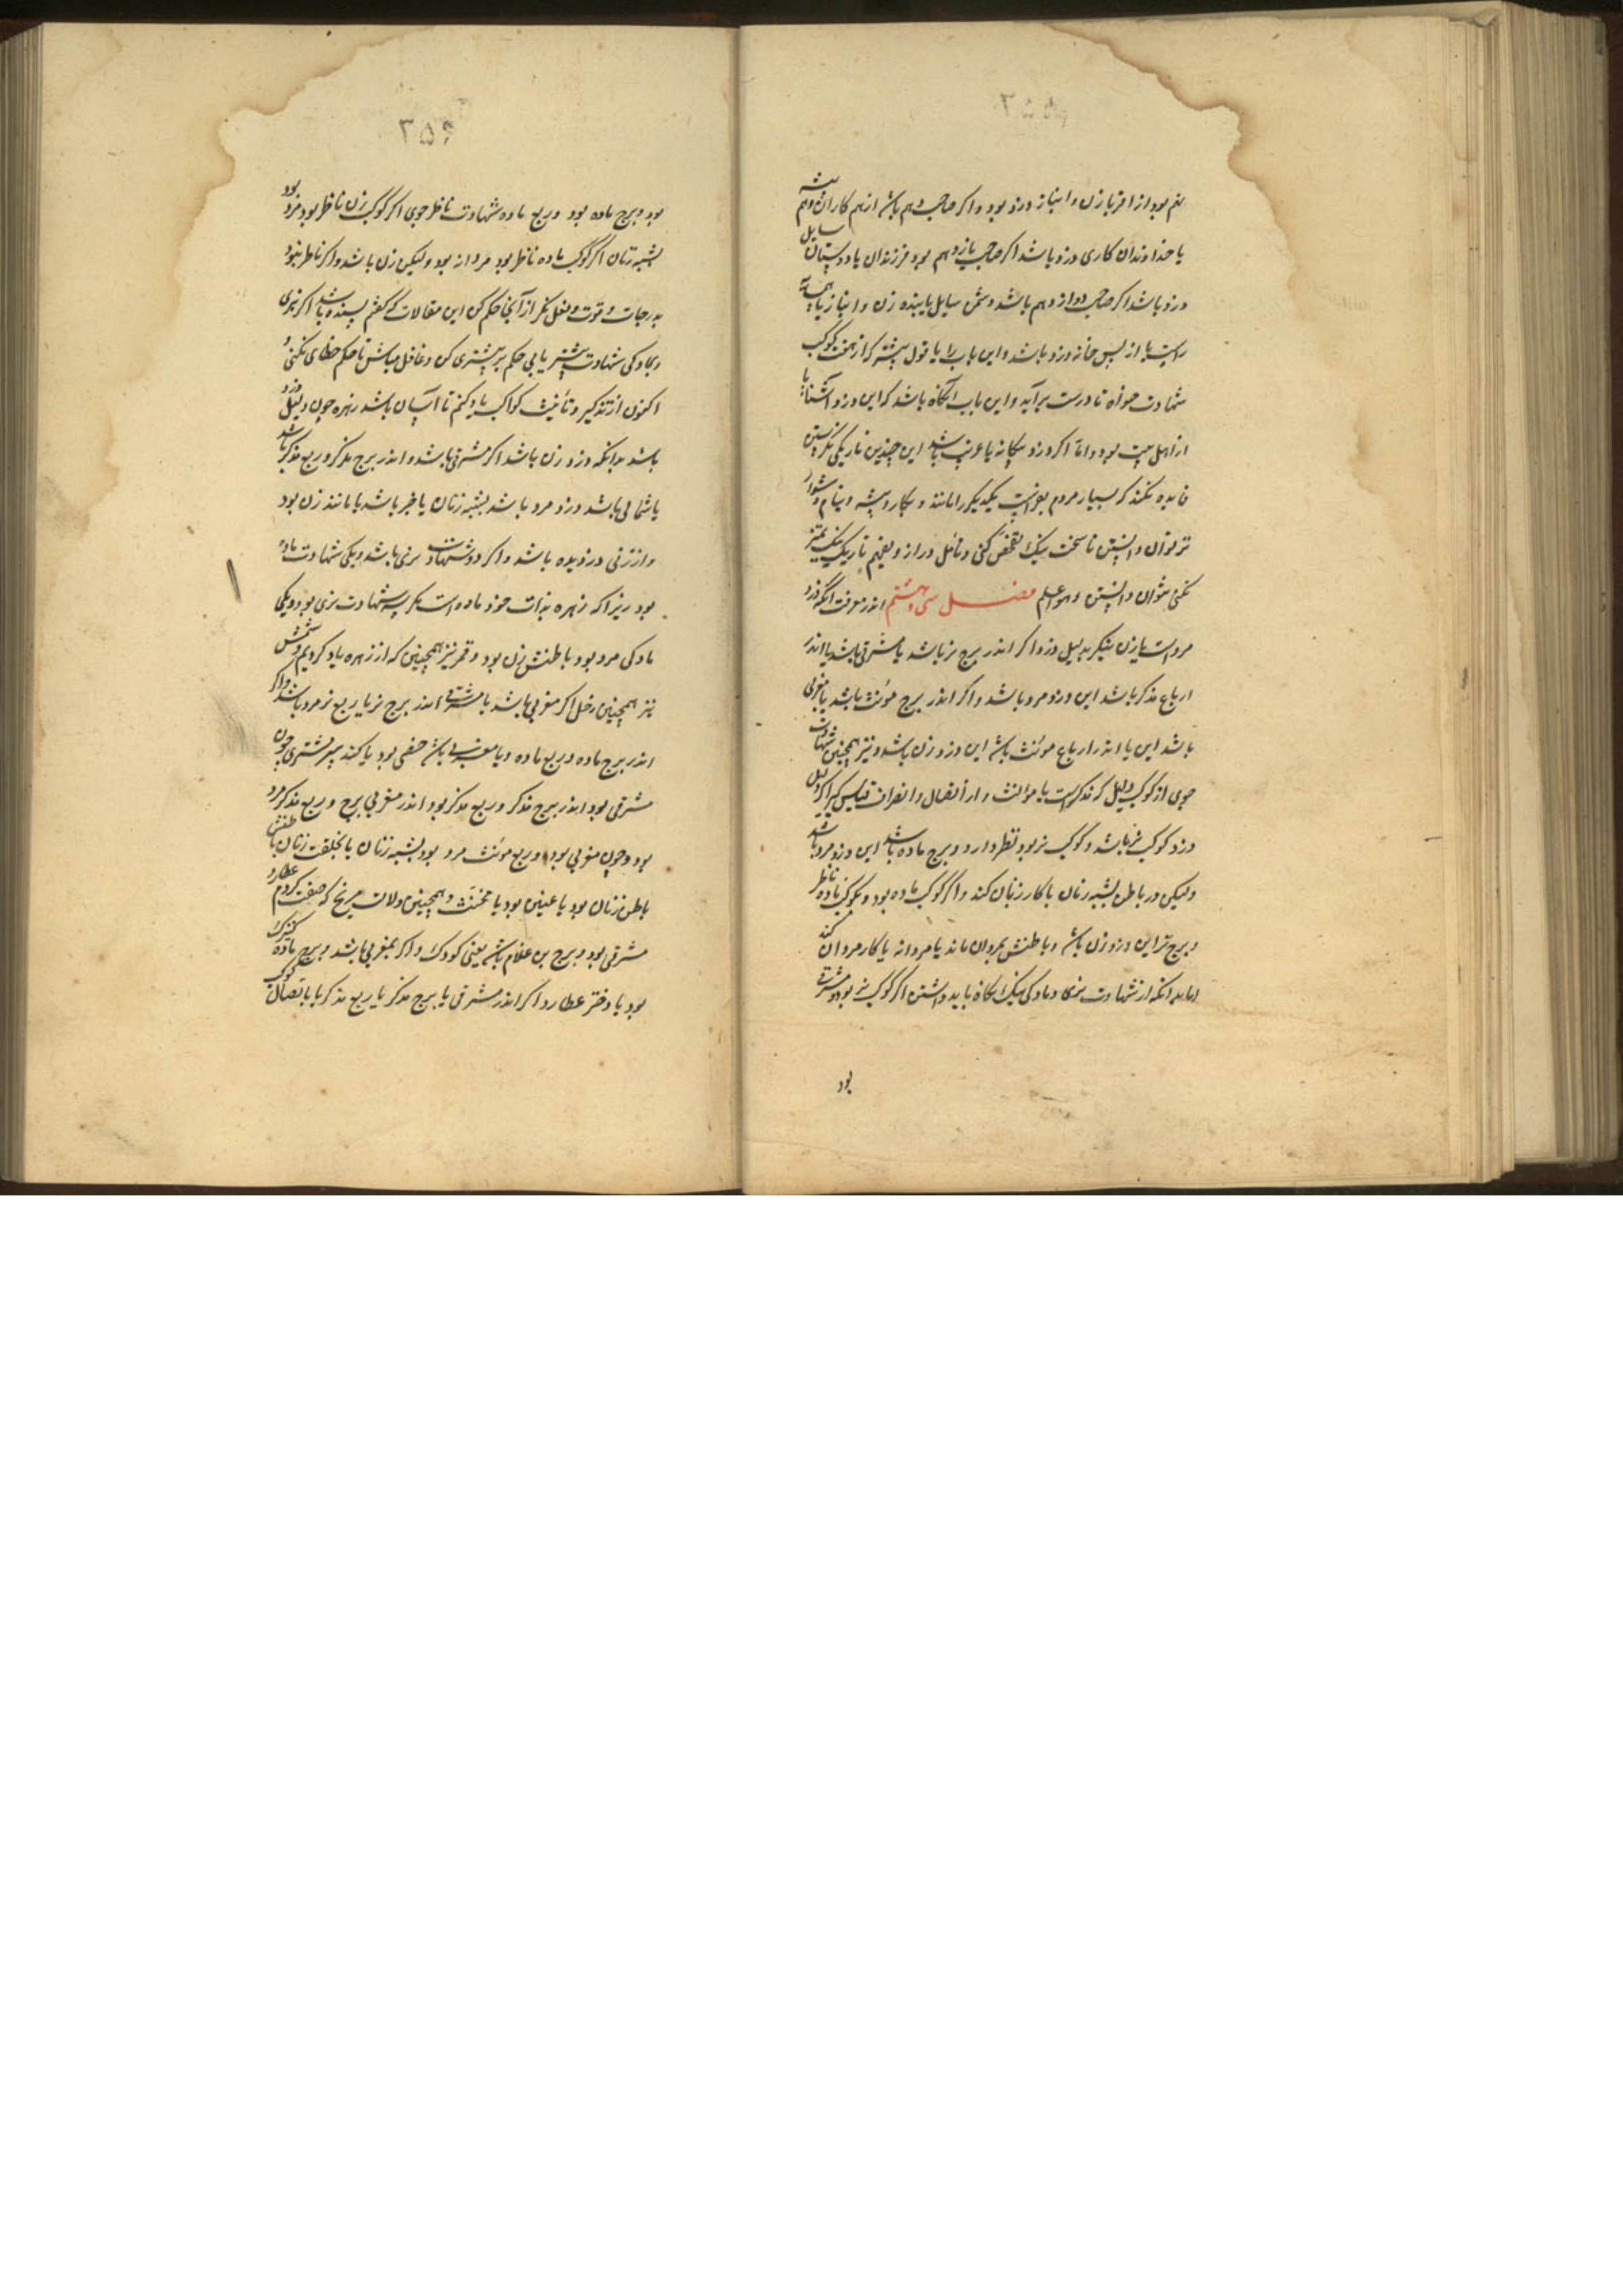 ۳۵۵
نهم بود از اقربا زن و انباز دزد بود و اکر صاحب دهم باشد از هم کاران و هم پیشه
یا خداوندان کاری دزد باشد اکر صاحب یازدهم بود فرزندان یا دوستان سایل
دزد باشد اکر صاحب دوازدهم باشد دشمن سایل یا بنده زن و انباز یا همسایه
راست یا از پس خانه دزد باشد و این باب را با قول پیشتر که از کوکب
شهادت خواه تا درست برآید و این باب آنکاه باشد که این دزد آشنا یا
از اهل بیت بود و اما اکر دزد بیکانه یا غریب باشد این چندین باریکی نکریستن
فایده نکند که بسیار مردم بغربت یکدیکر را مانند و بکار و پیشه و بنام و دشوار
تر توان دانستن تا سخت نیک تفحص کنی و تأمل دراز و بفهم باریک نیک تمیز
نکنی نتوان دانستن وهو اعلم فصل سی و هشتم اندر معرفت آنکه دزد
مرد است یا زن بنکر بدلیل دزد اکر اندر برج نر باشد یا مشرقی باشد یا اندر
ارباع مذکر باشد این دزد مرد باشد و اکر اندر برج مؤنث باشد یا مغربی
باشد این یا اندر ارباع مونث باشد این دزد زن باشد و نیز همچنین شهادت
جوی از کوکب دلیل که مذکر است یا مؤنث و از اتصال و انصراف قیاس کیر اکر دلیل
دزد کوکب نر باشد و کوکب نر بود نظر دارد و برج ماده باشد این دزد مرد باشد
ولیکن در باطن بشبه زنان یا کار زنان کند و اکر کوکب ماده بود و بکوکب ماده ناظر
و برج نر این دزد زن باشد و باطنش بمردان ماند یا مردانه یا کار مردان کند
اما بدانکه از شهادت نری و مادکی نیک نکاه باید داشتن اکر کوکب نر بود و مشرقی
بود
۳۵۶
بود و برج ماده بود و ربع ماده شهادت ناظر جوی اکر کوکب زن ناظر بود مرد بود
بشبه زنان اکر کوکب ماده ناظر بود مردانه بود ولیکن زن باشد و اکر ناظر نبود
بدرجات و قوت و فعل نکر از آنجا حکم کن این مقالات که کفتم بسنده باشد اکر نری
و مادکی شهادت بیشتر یابی حکم بر بیشتری کن و غافل مباش تا حکم خطای نکنی و
اکنون از تذکیر و تأنیث کواکب یاد کنم تا آسان باشد زهره چون دلیل دزد
باشد بدانکه دزد زن باشد اکر مشرقی باشد و اندر برج مذکر و ربع مذکر باشد
یا شمالی باشد دزد مرد باشد بشبه زنان یا خبر باشد یا مانند زن بود
و از زنی دزدیده باشد و اکر دو شهادت نری باشد و یکی شهادت ماده
بود زیرا که زهره بذات خود ماده است مکر سه شهادت نری بود و یکی
مادکی مرد بود باطنش زن بود و قمر نیز همچنین که از زهره یاد کردیم و شمس
نیز همچنین زحل اکر مغربی باشد یا مشرقی اندر برج نر یا ربع نر مرد باشد و اکر
اندر برج ماده و ربع ماده و یا مغربی باشد خصی بود یا کنده پیر مشتری چون
مشرقی بود اندر برج مذکر و ربع مذکر بود اندر مغربی برج و ربع مذکر مرد
بود و چون مغربی بود و ربع مونث مرد بود بشبه زنان یا بخلقت زنان باطنش
باطن زنان بود یا عنین بود یا مخنث و همچنین دلالت مریخ که صفت کردم عطارد
مشرقی بود و برج نر غلام باشد یعنی کودک و اکر بمغربی باشد و برج ماده کنیزک
بود یا دختر عطارد اکر اندر مشرق یا برج مذکر یا ربع مذکر یا باتصال کوکب